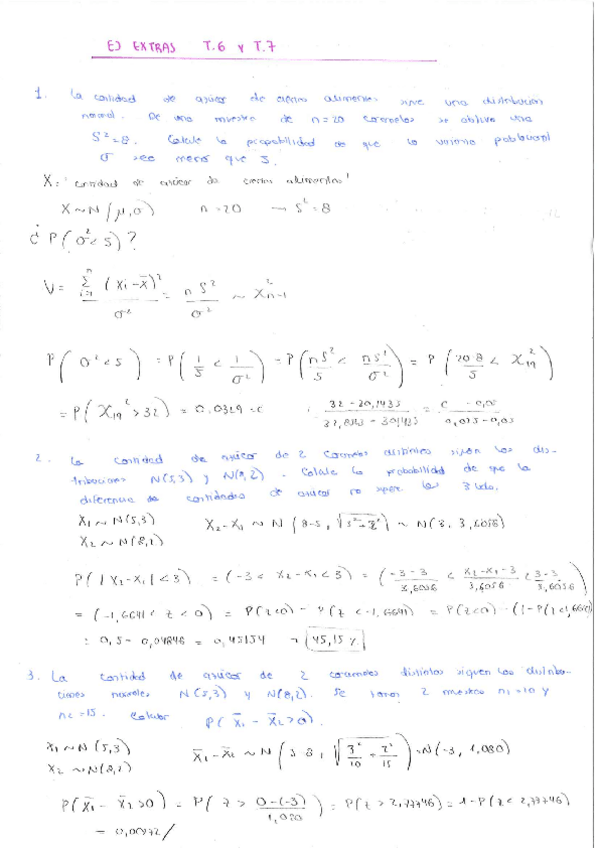 EJ EXTRAS T.6 Y T.7
1. La cantidad de azúcar de ciertos alimentos sigue una distribución
normal. De una muestra de n=20 caramelos se obtuvo una
S²=8. Calcule la probabilidad de que la varianza poblacional
σ sea menor que 5.
X: 'cantidad de azúcar de ciertos alimentos'
X ~ N(μ,σ) n=20 → S²=8
¿ P(σ²<5)?
V = Σ(i=1, n) (xi - x̄)² / σ² = nS²/σ² ~ X²n-1
P(σ²<5) = P(1/5 < 1/σ²) = P(nS²/5 < nS²/σ²) = P(20·8/5 < X²19)
= P(X²19 > 32) = 0,0329 = c : (32 - 30,1435)/(32,8523 - 30,1435) = (c - 0,05)/(0,025 - 0,05)
2. La cantidad de azúcar de 2 caramelos distintos siguen las dis-
tribuciones N(5,3) y N(8,2). Calcule la probabilidad de que la
diferencia de cantidades de azúcar no supere los 3
X1 ~ N(5,3)
X2 ~ N(8,2) X2 - X1 ~ N(8-5, √(3²-2²)) ~ N(3, 3,6056)
P(|X2-X1|<3) = (-3 < X2-X1 < 3) = ((-3-3)/3,6056 < (X2-X1-3)/3,6056 < (3-3)/3,6056)
= (-1,6641 < Z < 0) = P(Z<0) - P(Z < -1,6641) = P(Z<0) - (1 - P(Z<1,6641))
: 0,5 - 0,04846 = 0,45154 → 45,15%
3. La cantidad de azúcar de 2 caramelos distintos siguen las distribu-
ciones normales N(5,3) y N(8,2). Se toman 2 muestras n1=10 y
n2=15. Calcular P(x̄1 - x̄2 > 0).
X1 ~ N(5,3)
X2 ~ N(8,2) x̄1 - x̄2 ~ N(5-8, √(3²/10 + 2²/15)) = N(-3, 1,080)
P(x̄1 - x̄2 > 0) = P(Z > (0-(-3))/1,080) = P(Z > 2,77746) = 1 - P(Z < 2,77746)
= 0,00272 /